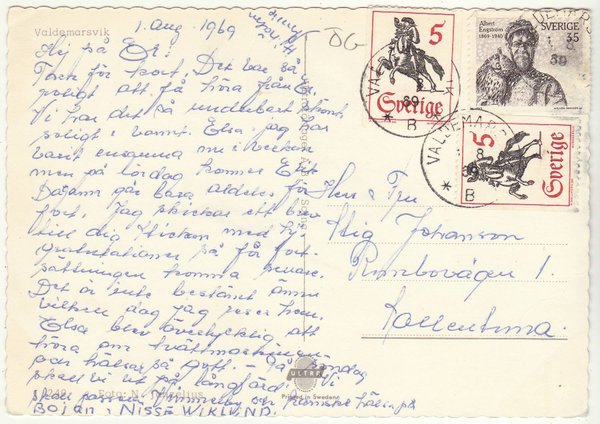 Valdemarsvik
1. aug. 1969
Hej på Er:
Tack för kort. Det var så
roligt att få höra från Er.
Vi har det så underbart skönt,
soligt o varmt. Elsa o jag har
varit ensamma nu i veckan
men på lördag kommer
Dagarna går bara alldeles för
fort. Jag skickar ett brev
till dig Stickan med
Gratulationer på få fort-
sättningen komma senare.
Det är inte bestämt ännu
vilken dag jag reser hem.
Elsa blev överlycklig att
höra om tvättmaskinen
och hälsar så gott. – På söndag
skall vi ut på långfärd. Vi
skall passera Vimmerby och kanske hälsa på
Början - NISSE WIKLUND.
DG
5
Sverige
Albert
Engström
1869-1940
SVERIGE
55
5
Sverige
VALDEMARSVIK
8
69
* B
Herr & Fru
Stig Johansson
Rimbovägen 1.
Vallentuna.
ULTRA
Printed in Sweden